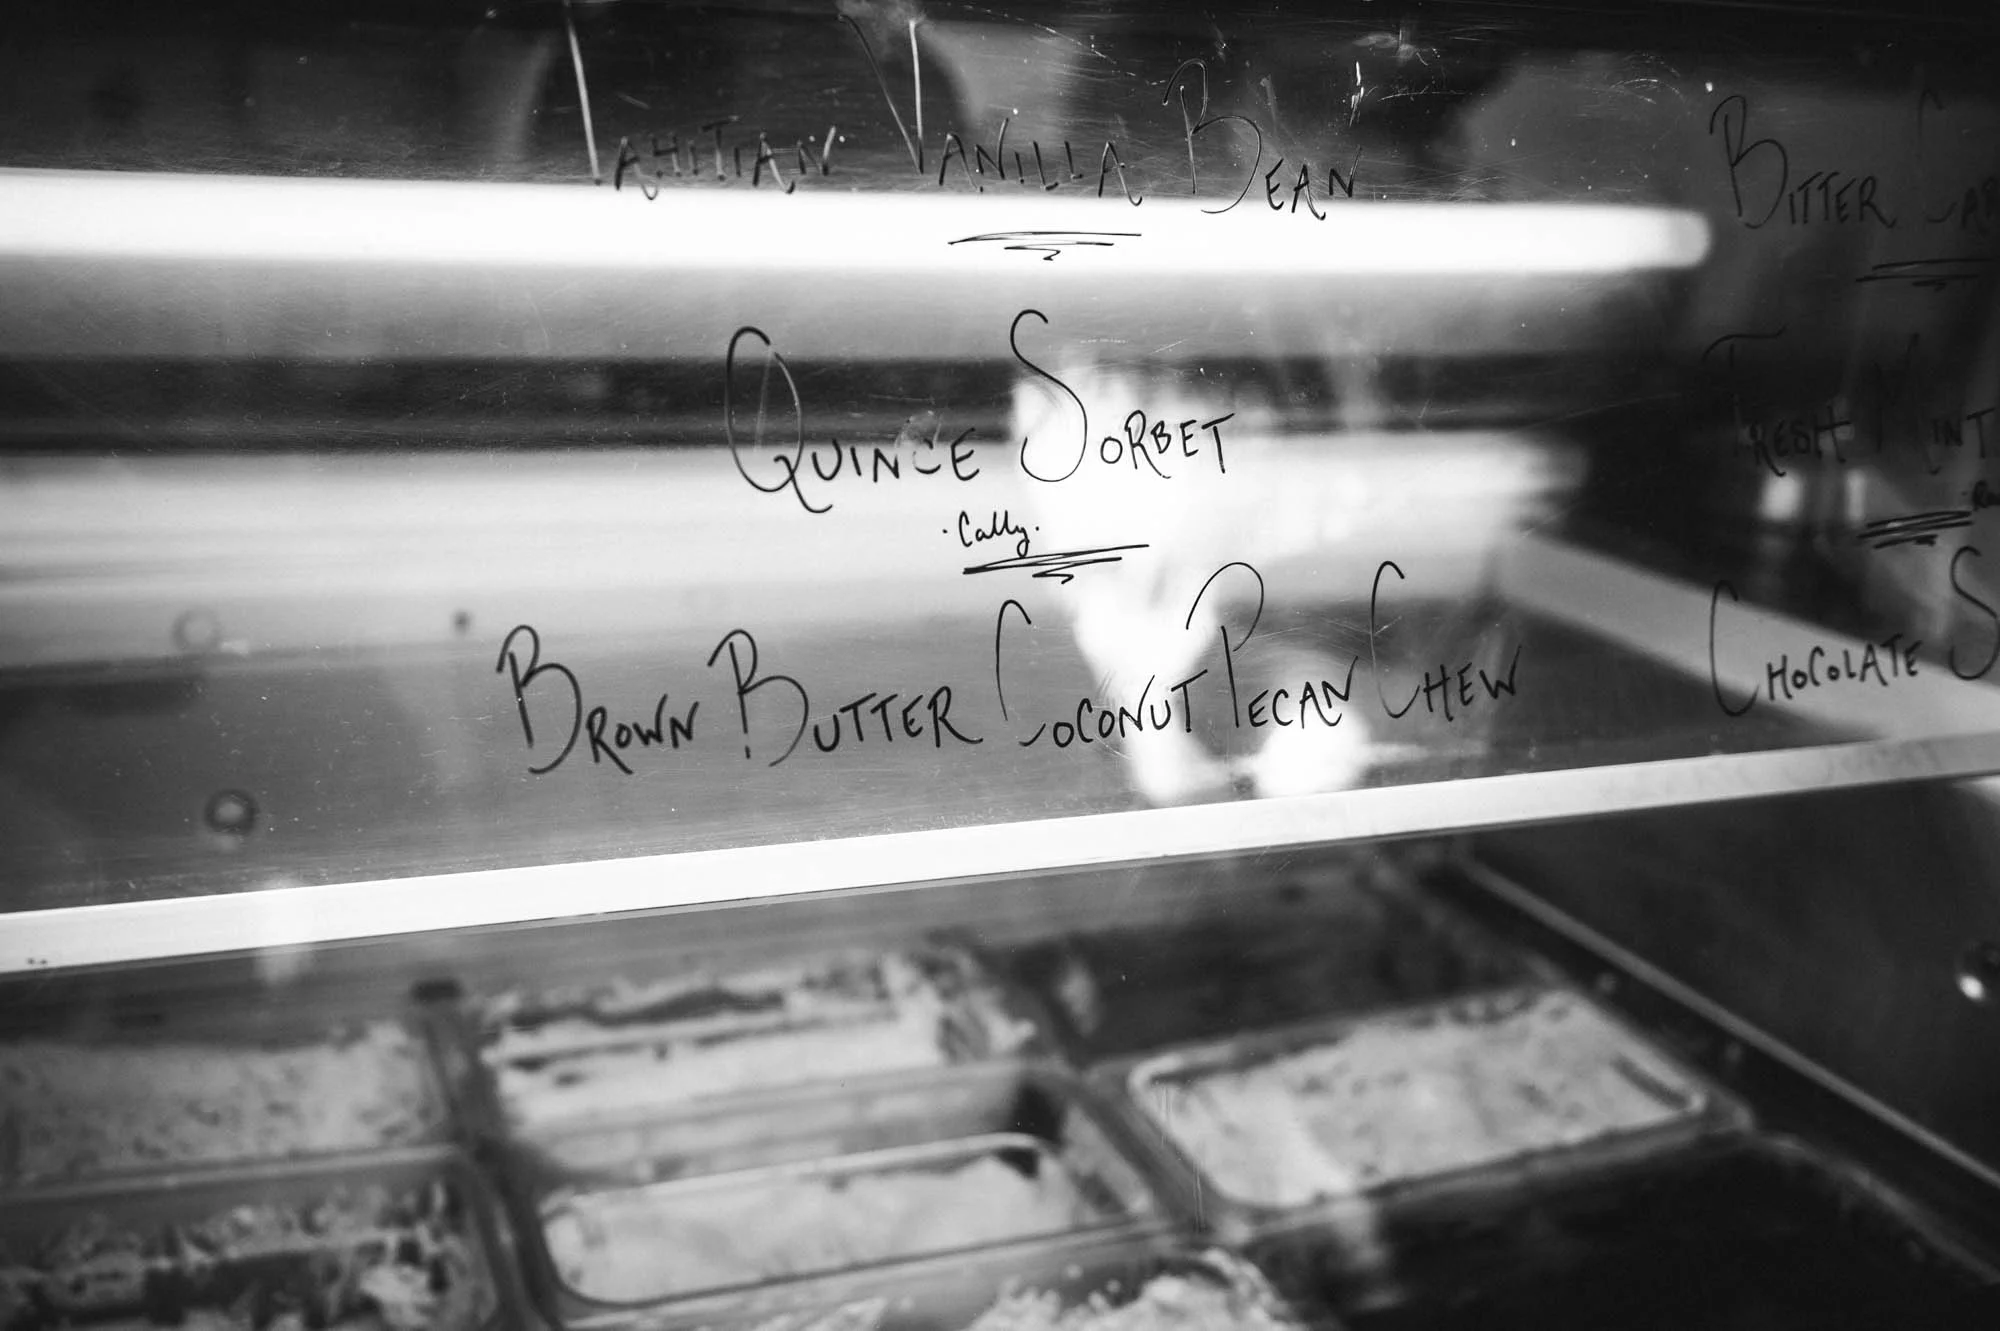 Tahitian Vanilla Bean
Quince Sorbet
·Cally.
Brown Butter Coconut Pecan Chew
Bitter
Fresh Mint
Chocolate